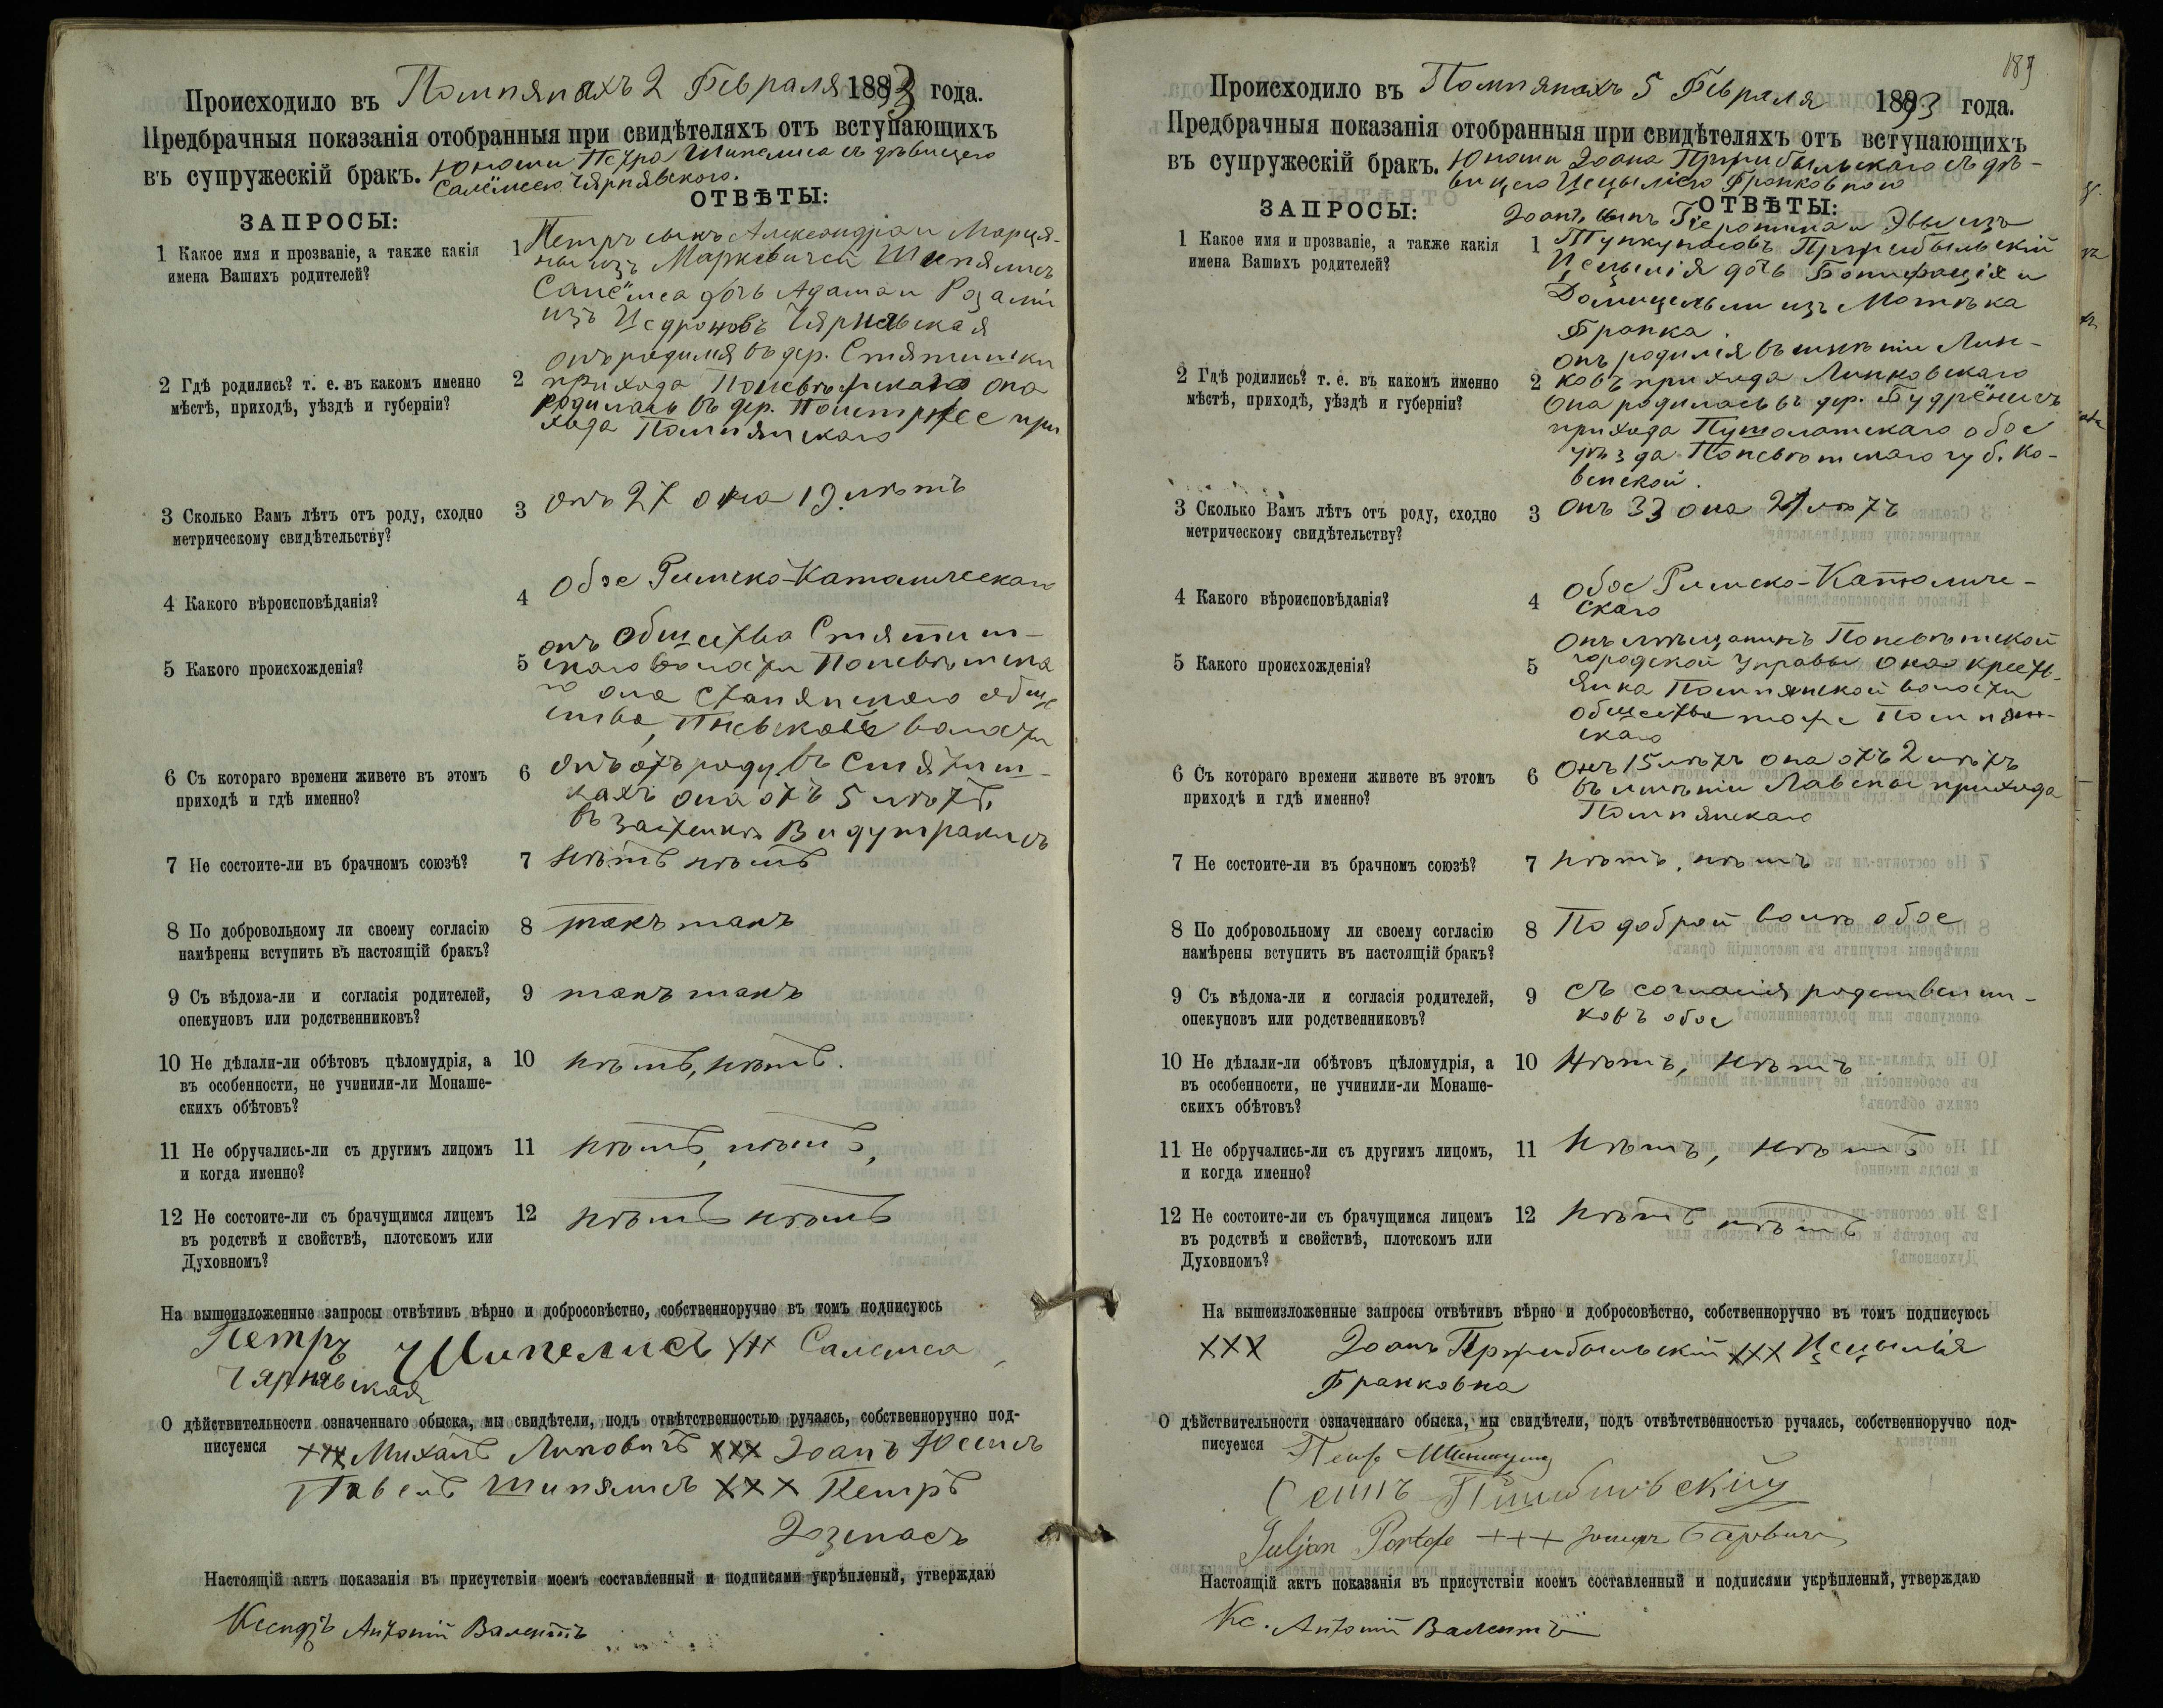 Происходило въ Помпянахъ 2 Февраля 1893 года.
Предбрачныя показанія отобранныя при свидѣтеляхъ отъ вступающихъ
въ супружескій бракъ. Юноши Петра Шипелиса съ дѣвицею
Салёмеею Чярнявского.
ЗАПРОСЫ:
ОТВѢТЫ:
1 Какое имя и прозваніе, а также какія
имена Вашихъ родителей?
1 Петръ сынъ Александра и Марця-
ны изъ Маркевичей Шипялисъ
Салёмеа дочь Адама и Розаліи
изъ Чярнявская
2 Гдѣ родились? т. е. въ какомъ именно
мѣстѣ, приходѣ, уѣздѣ и губерніи?
онъ родился въ дер. Стятишки
2 прихода Поневѣжскаго она
родилась въ дер. при
хода Помпянскаго
3 Сколько Вамъ лѣтъ отъ роду, сходно
метрическому свидѣтельству?
3 онъ 27 она 19 лѣтъ
4 Какого вѣроисповѣданія?
4 обое Римско-Католическаго
5 Какого происхожденія?
онъ общества Стятиш-
5 скаго волости Поневѣжска
го она общe
ства, волости
6 Съ котораго времени живете въ этомъ
приходѣ и гдѣ именно?
6 онъ отъ роду въ Стятиш-
кахъ она отъ 5 лѣтъ
въ застенкѣ
7 Не состоите-ли въ брачномъ союзѣ?
7 нѣтъ нѣтъ
8 По добровольному ли своему согласію
намѣрены вступить въ настоящій бракъ?
8 такъ такъ
9 Съ вѣдома-ли и согласія родителей,
опекуновъ или родственниковъ?
9 такъ такъ
10 Не дѣлали-ли обѣтовъ цѣломудрія, а
въ особенности, не учинили-ли Монаше-
скихъ обѣтовъ?
10 нѣтъ, нѣтъ.
11 Не обручались-ли съ другимъ лицомъ
и когда именно?
11 нѣтъ, нѣтъ,
12 Не состоите-ли съ брачущимся лицемъ
въ родствѣ и свойствѣ, плотскомъ или
Духовномъ?
12 нѣтъ нѣтъ
На вышеизложенные запросы отвѣтивъ вѣрно и добросовѣстно, собственноручно въ томъ подписуюсь
Петръ Шипелисъ ххх Салемеа
Чярнявская
О дѣйствительности означеннаго обыска, мы свидѣтели, подъ отвѣтственностью ручаясь, собственноручно под-
писуемся ххх Михаилъ ххх Іоанъ
Павелъ Шипялисъ ххх Петръ
Настоящій актъ показанія въ присутствіи моемъ составленный и подписями укрѣпленый, утверждаю
Ксендзъ Антоній Валентъ
189
Происходило въ Помпянахъ 5 Февраля 1893 года.
Предбрачныя показанія отобранныя при свидѣтеляхъ отъ вступающихъ
въ супружескій бракъ. Юноши Іоана Пржибыльскаго съ дѣ-
вицею Цецыліею Франковною
ЗАПРОСЫ:
ОТВѢТЫ:
1 Какое имя и прозваніе, а также какія
имена Вашихъ родителей?
Іоанъ сынъ Іеронима и Эвы изъ
1 Пржибыльскій
Цецылія дочь Бонифація и
Домицельли изъ
Франка.
2 Гдѣ родились? т. е. въ какомъ именно
мѣстѣ, приходѣ, уѣздѣ и губерніи?
онъ родился въ имѣніи Лин-
2 ковъ прихода Линковскаго
она родилась въ дер.
прихода Пушолатскаго обое
уѣзда Поневѣжскаго губ. Ко-
венской.
3 Сколько Вамъ лѣтъ отъ роду, сходно
метрическому свидѣтельству?
3 онъ 33 она 21 лѣтъ
4 Какого вѣроисповѣданія?
4 обое Римско-Католиче-
скаго
5 Какого происхожденія?
онъ мѣщанинъ Поневѣжской
5 городской управы она крестъ-
янка Помпянской волости
общества тоже Помпян-
скаго
6 Съ котораго времени живете въ этомъ
приходѣ и гдѣ именно?
6 онъ 15 лѣтъ она отъ 2 лѣтъ
въ имѣніи прихода
Помпянскаго
7 Не состоите-ли въ брачномъ союзѣ?
7 нѣтъ, нѣтъ
8 По добровольному ли своему согласію
намѣрены вступить въ настоящій бракъ?
8 По доброй волѣ обое
9 Съ вѣдома-ли и согласія родителей,
опекуновъ или родственниковъ?
9 съ согласія родственни-
ковъ обое
10 Не дѣлали-ли обѣтовъ цѣломудрія, а
въ особенности, не учинили-ли Монаше-
скихъ обѣтовъ?
10 Нѣтъ, нѣтъ.
11 Не обручались-ли съ другимъ лицомъ,
и когда именно?
11 нѣтъ, нѣтъ
12 Не состоите-ли съ брачущимся лицемъ
въ родствѣ и свойствѣ, плотскомъ или
Духовномъ?
12 нѣтъ нѣтъ
На вышеизложенные запросы отвѣтивъ вѣрно и добросовѣстно, собственноручно въ томъ подписуюсь
ххх Іоанъ Пржибыльскій ххх Цецылія
Франковна
О дѣйствительности означеннаго обыска, мы свидѣтели, подъ отвѣтственностью ручаясь, собственноручно под-
писуемся
Juljan +++
Настоящій актъ показанія въ присутствіи моемъ составленный и подписями укрѣпленый, утверждаю
Кс. Антоній Валентъ